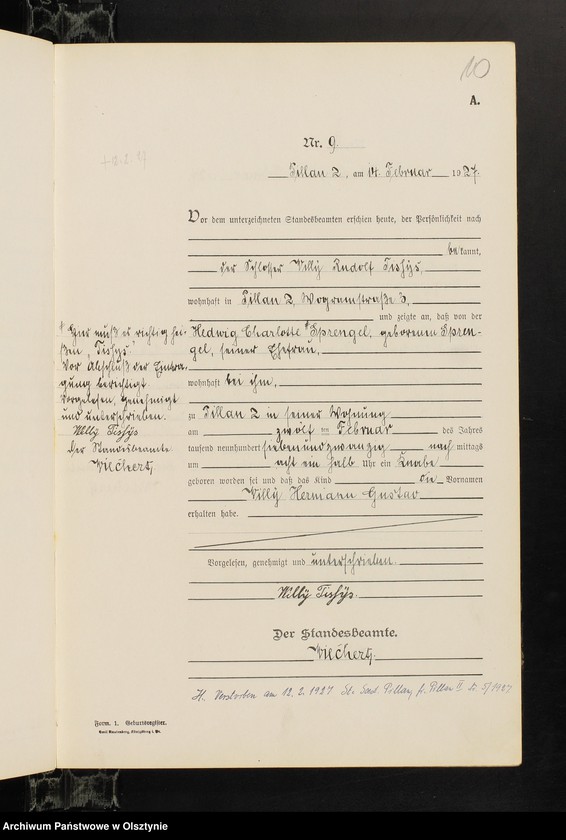 10
A.
Nr. 9.
Pillau 2, am 14. Februar 1927.
Vor dem unterzeichneten Standesbeamten erschien heute, der Persönlichkeit nach
bekannt,
der Schlosser Willy Rudolf Tishys,
wohnhaft in Pillau 2, Wogramstraße 3,
und zeigte an, daß von der
Hedwig Charlotte Sprengel, geborenen Spren-
gel, seiner Ehefrau,
wohnhaft bei ihm,
zu Pillau 2 in seiner Wohnung
am zwölf ten Februar des Jahres
tausend neunhundert siebenundzwanzig nach mittags
um acht ein halb Uhr ein Knabe
geboren worden sei und daß das Kind die Vornamen
Willy Hermann Gustav
erhalten habe.
Vorgelesen, genehmigt und unterschrieben.
Willy Tishys.
Der Standesbeamte.
Wiechert.
Hier muß es richtig hei-
ßen „Tishys"
Vor Abschluß der Eintra-
gung berichtigt.
Vorgelesen, genehmigt
und unterschrieben.
Willy Tishys
Der Standesbeamte
Wiechert.
H. Verstorben am 12.2.1927 St. Amt Pillau, Pillau II Nr. 5/1927
Form. 1. Geburtsregister.
Archiwum Państwowe w Olsztynie